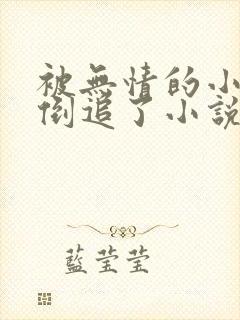 被無情的小
倒追了小說
藍莹莹